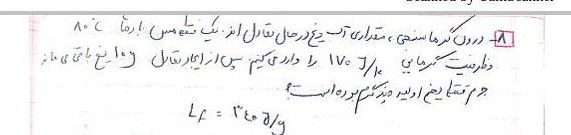 ۸- درون گرماسنجی، مقداری آب و یخ در حال تعادل اند. یک قطعه مس با دمای ۸۰°C
و ظرفیت گرمایی ۱۷۰ J/K را وارد می‌کنیم. پس از ایجاد تعادل ۱۰g یخ باقی می‌ماند
جرم قطعه یخ اولیه چند گرم بوده است؟
L_f = ۳۴۰ J/g